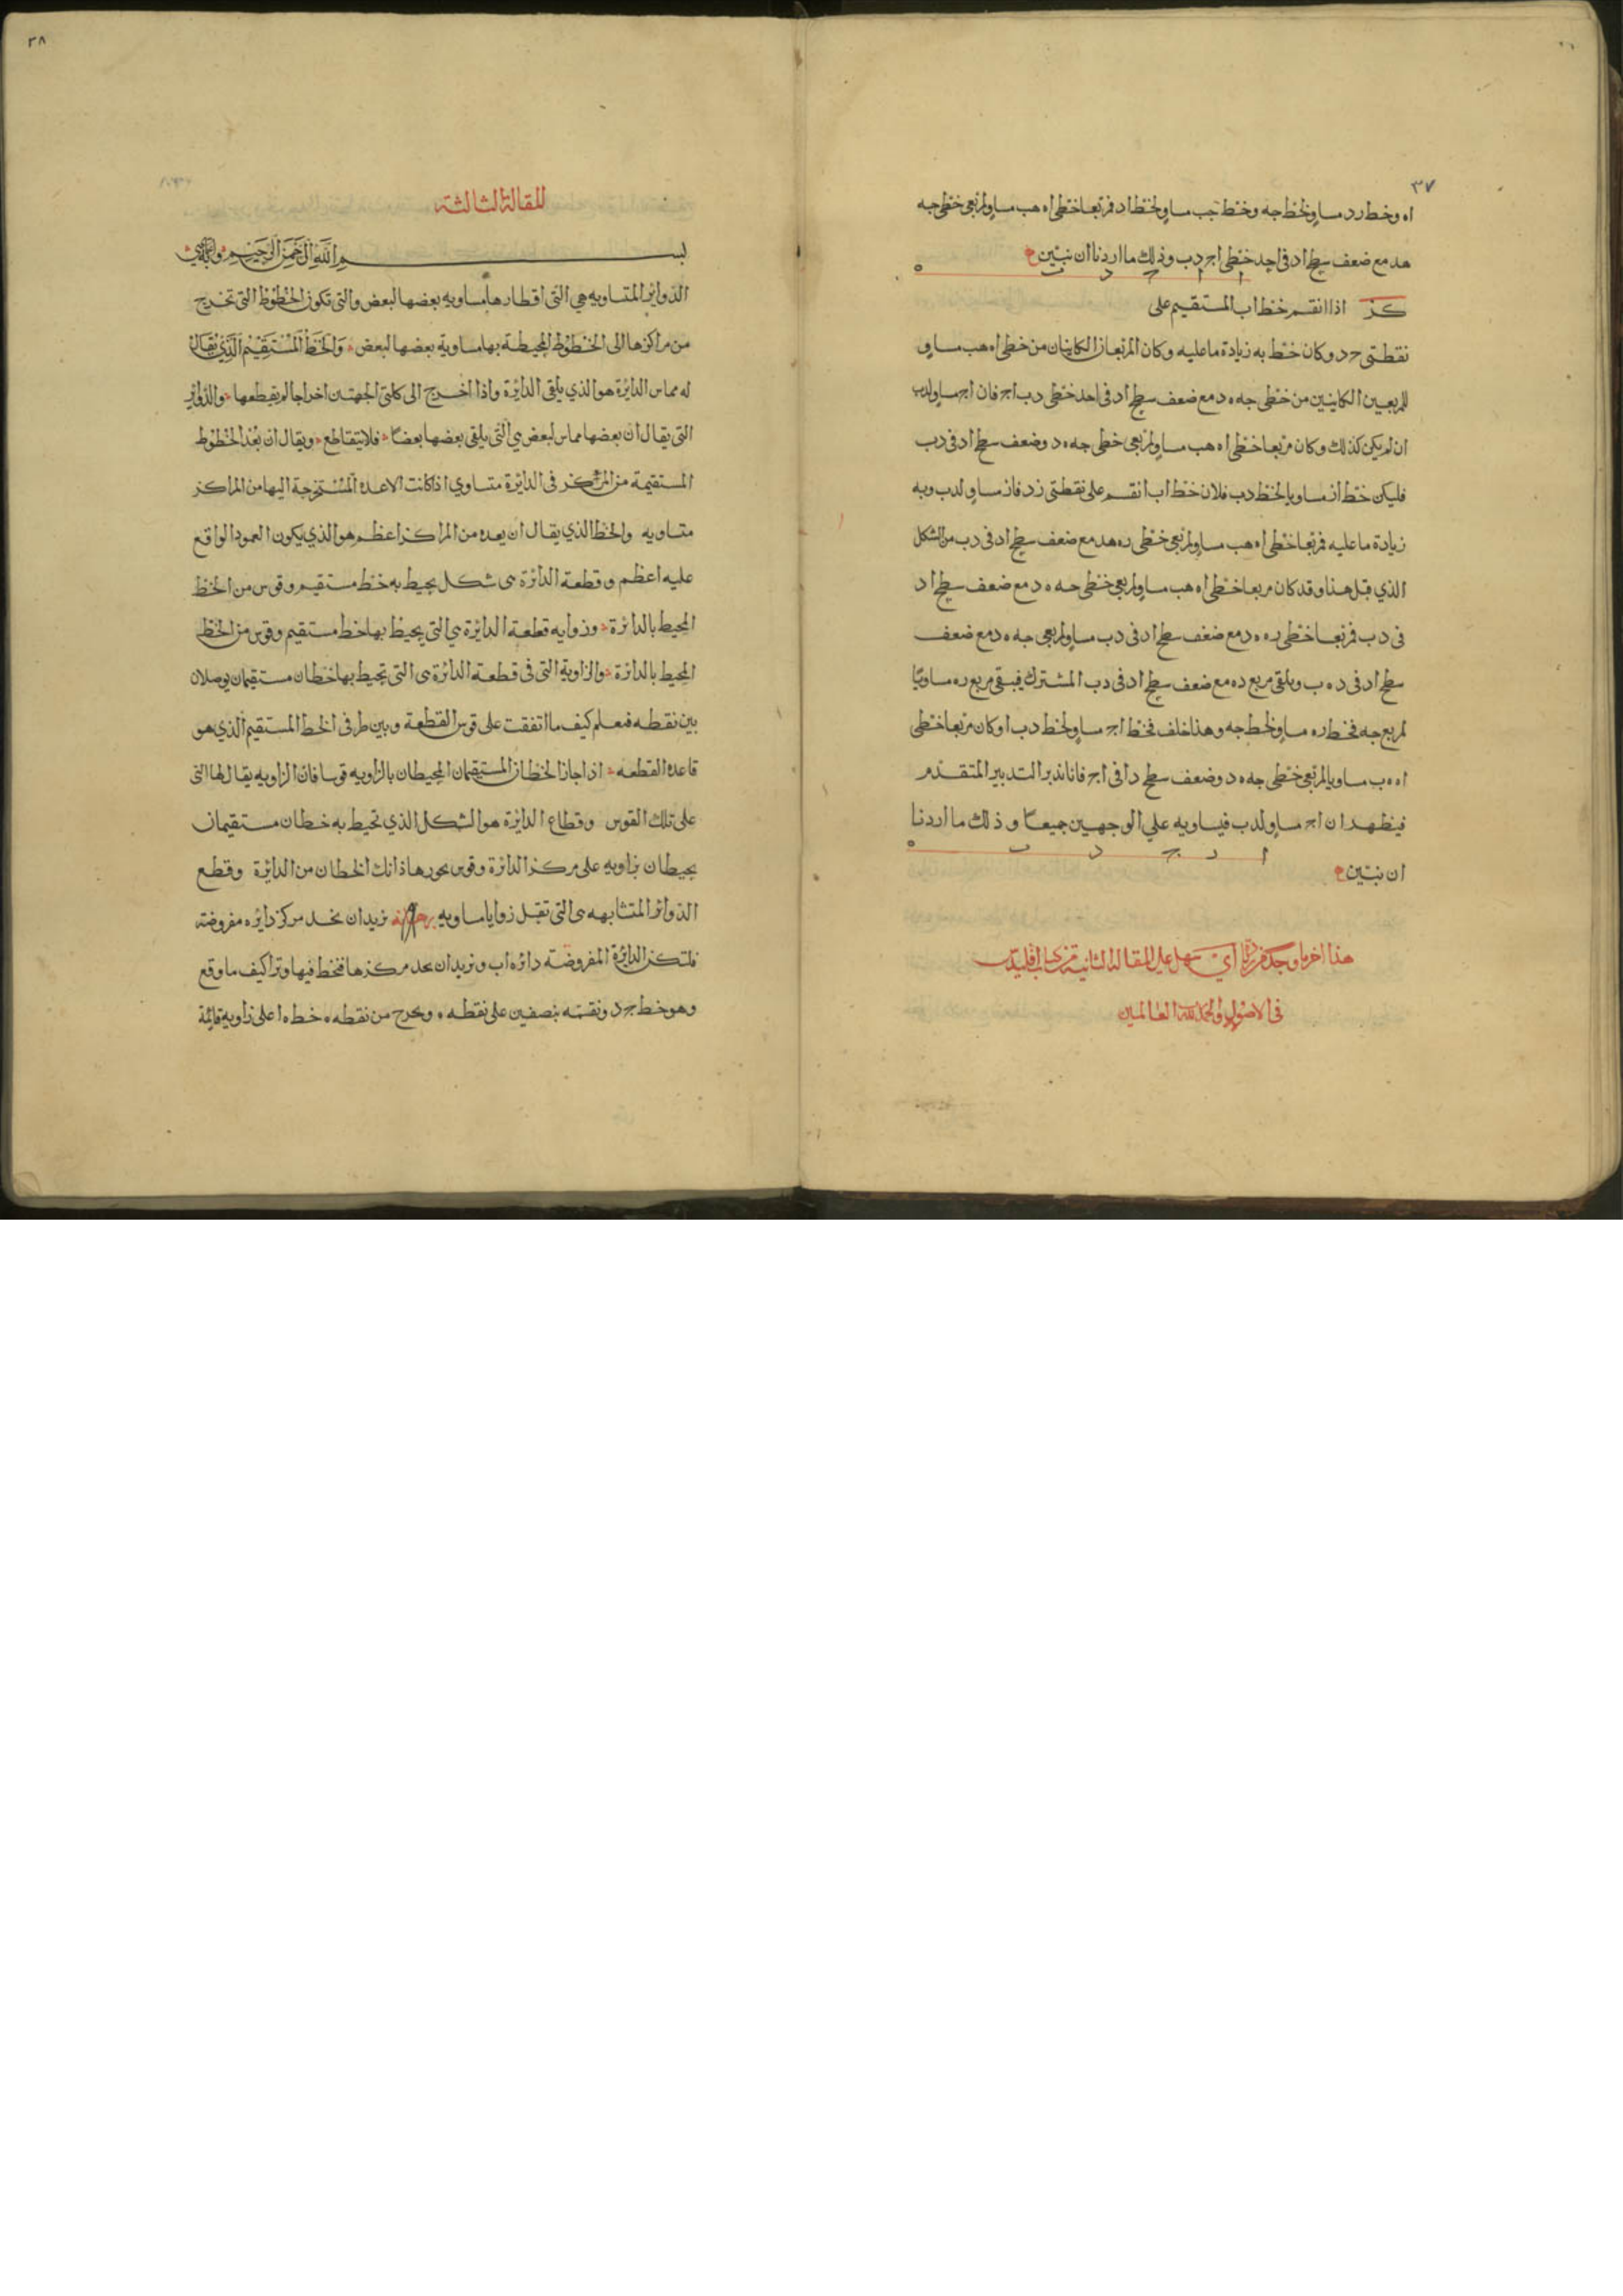 ٣٧
اه وخط رد مساو لخط جه وخط جب مساو لخط اد فمربعا خطي اه هب مساو لمربعي خطي جه
هد مع ضعف سطح اد في احد خطي اج دب وذلك ما اردنا ان نبين
ا ا ج د ب
كز اذا انقسم خط اب المستقيم على
نقطتي ج د وكان خط به زيادة ما عليه وكان المربعان الكاينان من خطي اه هب مساو
للمربعين الكاينين من خطي جه ه د مع ضعف سطح اد في احد خطي دب اج فان اج مساو لدب
ان لم يكن كذلك وكان مربعا خطي اه هب مساو لمربعي خطي جه ه د وضعف سطح اد في دب
فليكن خط از مساويا لخط دب فلان خط اب انقسم على نقطتي ز د فاز مساو لدب وبه
زيادة ما عليه فمربعا خطي اه هب مساو لمربعي خطي ره هد مع ضعف سطح اد في دب من الشكل
الذي قبل هذا وقد كان مربعا خطي اه هب مساو لمربعي خطي جه ه د مع ضعف سطح اد
في دب فمربعا خطي ره ه د مع ضعف سطح اد في دب مساو لمربعي جه ه د مع ضعف
سطح اد في د ه ب ويلقى مربع ده مع ضعف سطح اد في دب المشترك فيبقى مربع ره مساويا
لمربع جه فخط ره مساو لخط جه وهذا خلف فخط اج مساو لخط دب او كان مربعا خطي
اه ه ب مساويا لمربعي خطي جه ه د وضعف سطح دا في اج فانا ندبر التدبير المتقدم
فيظهر ان اج مساو لدب فيساويه علي الوجهين جميعا وذلك ما اردنا
ا ر ج د ب
ان نبين
هذا اخر ما وجد من زيادات ابي سهل على المقالة الثانية من كتاب اقليدس
في الاصول والحمد لله رب العالمين
٣٨
المقالة الثالثة
بسم الله الرحمن الرحيم
الدواير المتساويه هي التي اقطارها مساويه بعضها لبعض والتي تكون الخطوط التي تخرج
من مراكزها الى الخطوط المحيطة بها مساوية بعضها لبعض والخط المستقيم الذي يقال
له مماس الدايرة هو الذي يلقى الدايرة واذا اخرج الى كلتي الجهتين اخراجا لم يقطعها والدواير
التي يقال ان بعضها مماس لبعض هي التي يلقى بعضها بعضا فلا يتقاطع ويقال ان بعد الخطوط
المستقيمة من المركز في الدايرة متساوي اذا كانت الاعمدة المستخرجة اليها من المراكز
متساويه والخط الذي يقال ان بعده من المراكز اعظم هو الذي يكون العمود الواقع
عليه اعظم وقطعة الدائرة هى شكل يحيط به خط مستقيم وقوس من الخط
المحيط بالدائرة وزوايه قطعة الدايرة هي التي يحيط بها خط مستقيم وقوس من الخط
المحيط بالدائرة والزاوية التى فى قطعة الدائرة هى التى تحيط بها خطان مستقيمان يوصلان
بين نقطه فتعلم كيف ما اتفقت على قوس القطعة وبين طرفى الخط المستقيم الذي هو
قاعدة القطعه اذا جاز الخطان المستقيمان المحيطان بالزاويه قوسا فان الزاويه يقال لها التى
على تلك القوس وقطاع الدايرة هو الشكل الذي تحيط به خطان مستقيمان
يحيطان بزاويه على مركز الدائرة وقوس يحوزها ذانك الخطان من الدايرة وقطع
الدوائر المتشابهه هى التى تقبل زوايا مساويه نريد ان نجد مركز دايره مفروضة
فلتكن الدايرة المفروضة دائره اب ونريد ان نجد مركزها فنخط فيها وترا كيف ما وقع
وهو خط ج د ونقسمه بنصفين على نقطه ه ونخرج من نقطه ه خط ه ا على زاويه قايمة